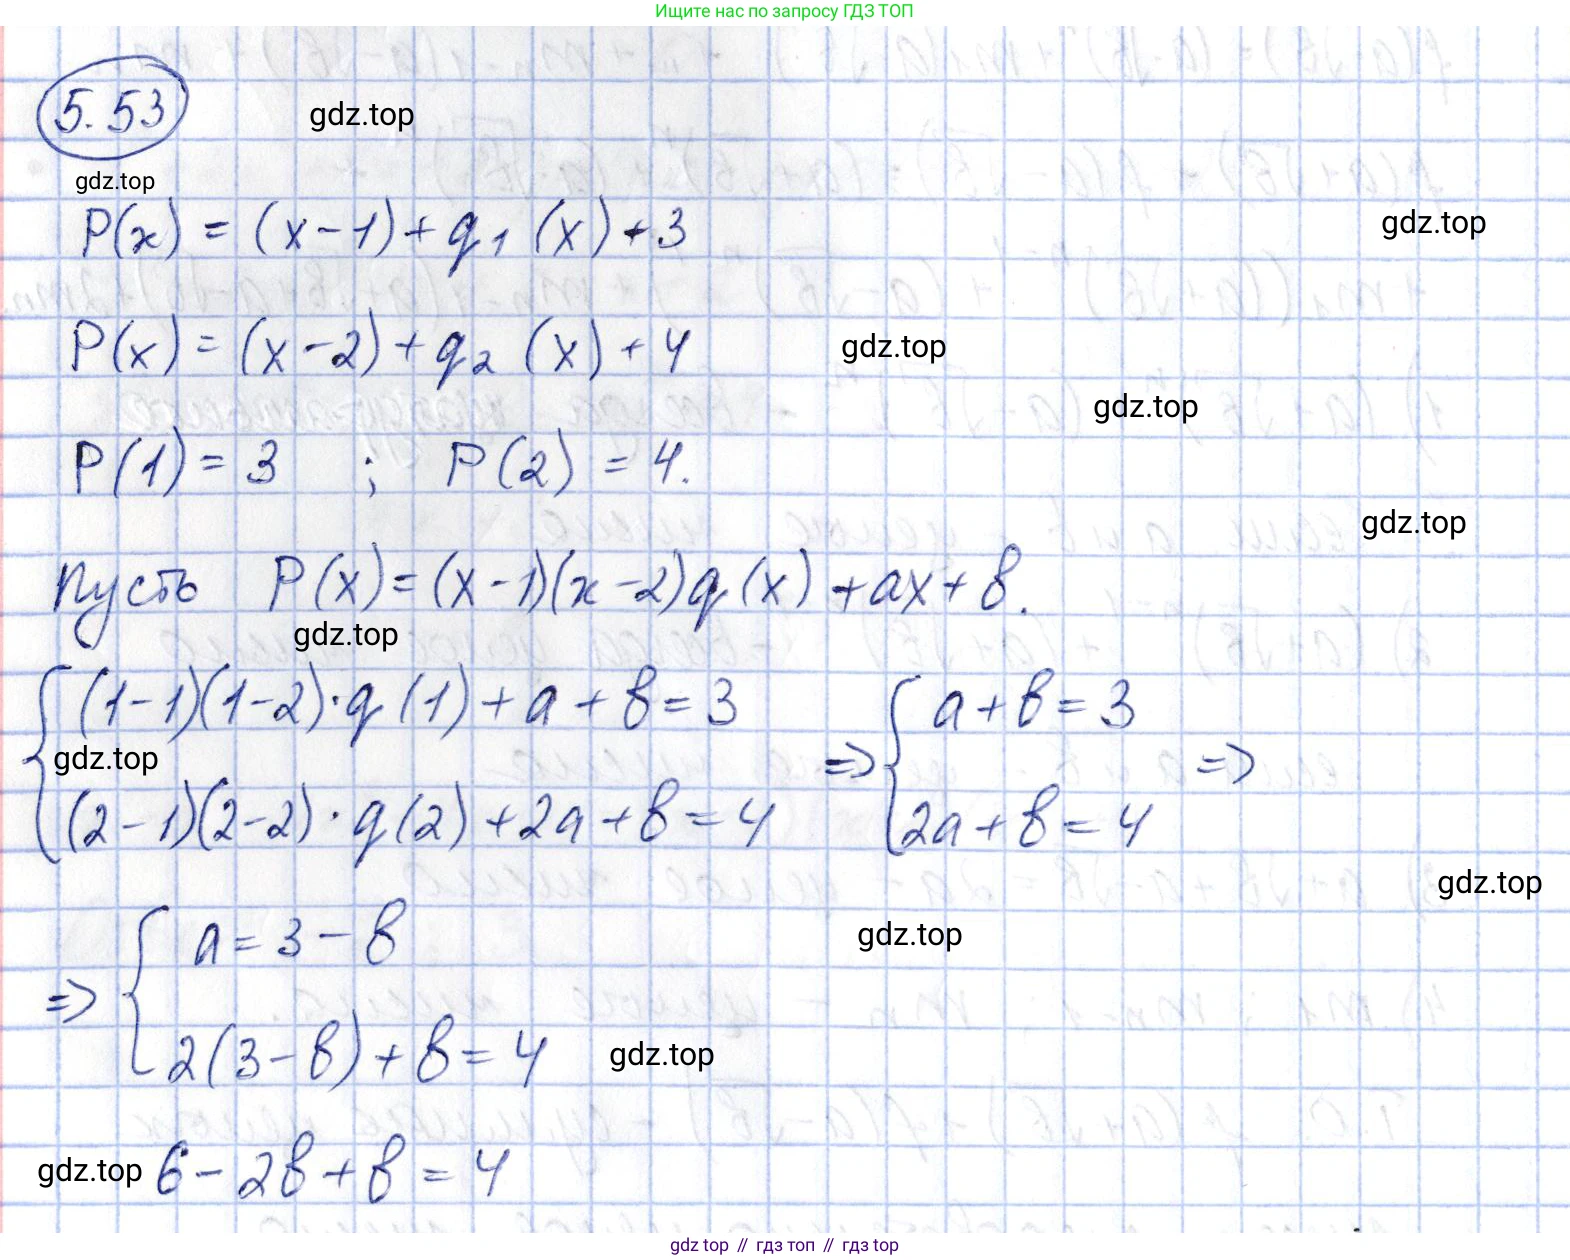 Ищите нас по запросу ГДЗ ТОП
5.53
gdz.top
gdz.top
P(x) = (x-1) + q₁ (x) + 3
gdz.top
P(x) = (x-2) + q₂ (x) + 4
gdz.top
gdz.top
P(1) = 3 ; P(2) = 4.
gdz.top
Пусть P(x) = (x-1)(x-2)q(x) + ax + b.
gdz.top
{ (1-1)(1-2)·q(1) + a + b = 3 => { a + b = 3 =>
gdz.top
(2-1)(2-2)·q(2) + 2a + b = 4 2a + b = 4
gdz.top
gdz.top
=> { a = 3 - b
2(3-b) + b = 4
gdz.top
gdz.top
6 - 2b + b = 4
gdz top // гдз топ // гдз top